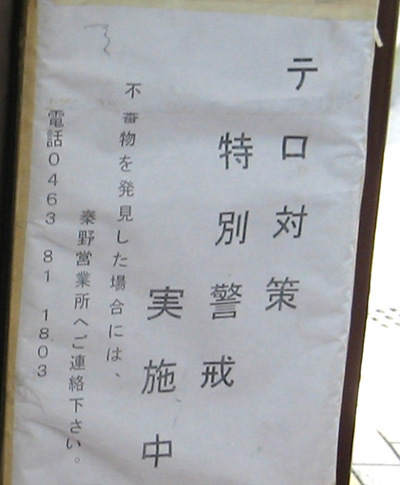 テロ対策
特別警戒
実施中
不審物を発見した場合には、
秦野営業所へご連絡下さい。
電話0463 81 1803